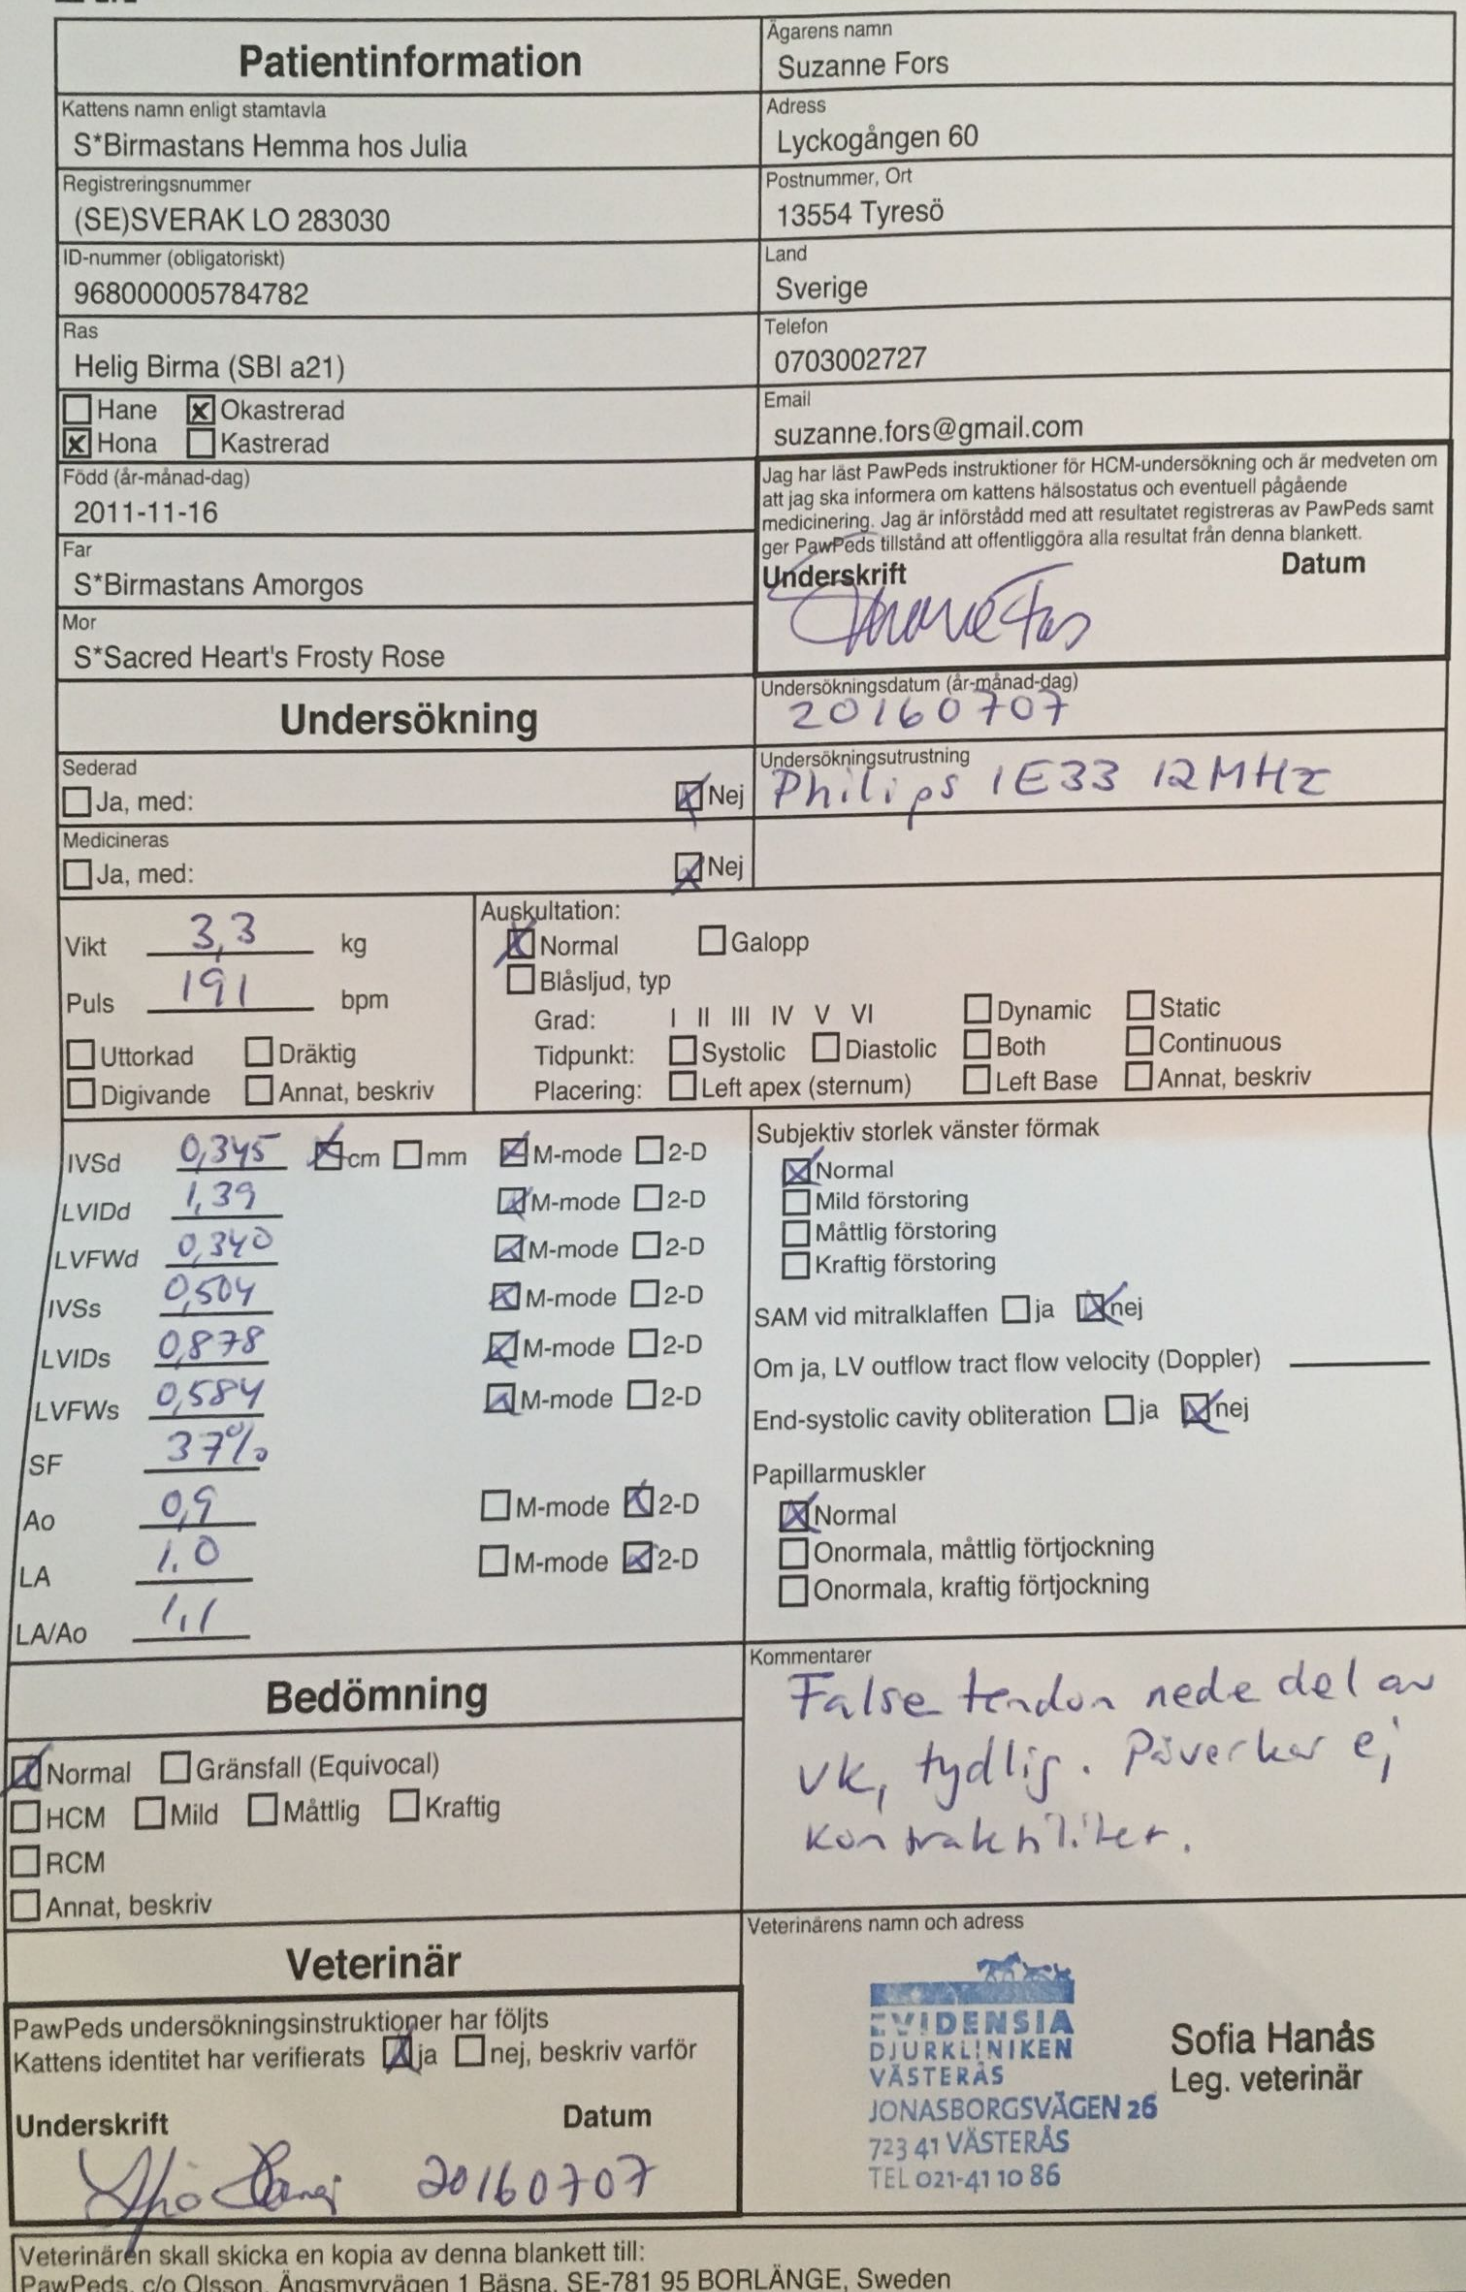 Patientinformation
Ägarens namn
Suzanne Fors
Kattens namn enligt stamtavla
S*Birmastans Hemma hos Julia
Adress
Lyckogången 60
Registreringsnummer
(SE)SVERAK LO 283030
Postnummer, Ort
13554 Tyresö
ID-nummer (obligatoriskt)
968000005784782
Land
Sverige
Ras
Helig Birma (SBI a21)
Telefon
0703002727
Hane Okastrerad
Hona Kastrerad
Email
suzanne.fors@gmail.com
Född (år-månad-dag)
2011-11-16
Far
S*Birmastans Amorgos
Mor
S*Sacred Heart's Frosty Rose
Jag har läst PawPeds instruktioner för HCM-undersökning och är medveten om
att jag ska informera om kattens hälsostatus och eventuell pågående
medicinering. Jag är införstådd med att resultatet registreras av PawPeds samt
ger PawPeds tillstånd att offentliggöra alla resultat från denna blankett.
Underskrift Datum
Undersökning
Undersökningsdatum (år-månad-dag)
20160707
Sederad
Ja, med: Nej
Undersökningsutrustning
Philips IE33 12MHz
Medicineras
Ja, med: Nej
Vikt 3,3 kg
Puls 191 bpm
Uttorkad Dräktig
Digivande Annat, beskriv
Auskultation:
Normal Galopp
Blåsljud, typ
Grad: I II III IV V VI Dynamic Static
Tidpunkt: Systolic Diastolic Both Continuous
Placering: Left apex (sternum) Left Base Annat, beskriv
IVSd 0,345 cm mm M-mode 2-D
LVIDd 1,39 M-mode 2-D
LVFWd 0,340 M-mode 2-D
IVSs 0,504 M-mode 2-D
LVIDs 0,878 M-mode 2-D
LVFWs 0,584 M-mode 2-D
SF 37%
Ao 0,9 M-mode 2-D
LA 1,0 M-mode 2-D
LA/Ao 1,1
Subjektiv storlek vänster förmak
Normal
Mild förstoring
Måttlig förstoring
Kraftig förstoring
SAM vid mitralklaffen ja nej
Om ja, LV outflow tract flow velocity (Doppler)
End-systolic cavity obliteration ja nej
Papillarmuskler
Normal
Onormala, måttlig förtjockning
Onormala, kraftig förtjockning
Bedömning
Normal Gränsfall (Equivocal)
HCM Mild Måttlig Kraftig
RCM
Annat, beskriv
Kommentarer
False tendon nede del av
vk, tydlig. Påverkar ej
kontraktilitet.
Veterinär
PawPeds undersökningsinstruktioner har följts
Kattens identitet har verifierats ja nej, beskriv varför
Underskrift Datum
20160707
Veterinärens namn och adress
EVIDENSIA
DJURKLINIKEN
VÄSTERÅS
JONASBORGSVÄGEN 26
723 41 VÄSTERÅS
TEL 021-41 10 86
Sofia Hanås
Leg. veterinär
Veterinären skall skicka en kopia av denna blankett till:
PawPeds, c/o Olsson, Ängsmyrvägen 1 Bäsna, SE-781 95 BORLÄNGE, Sweden